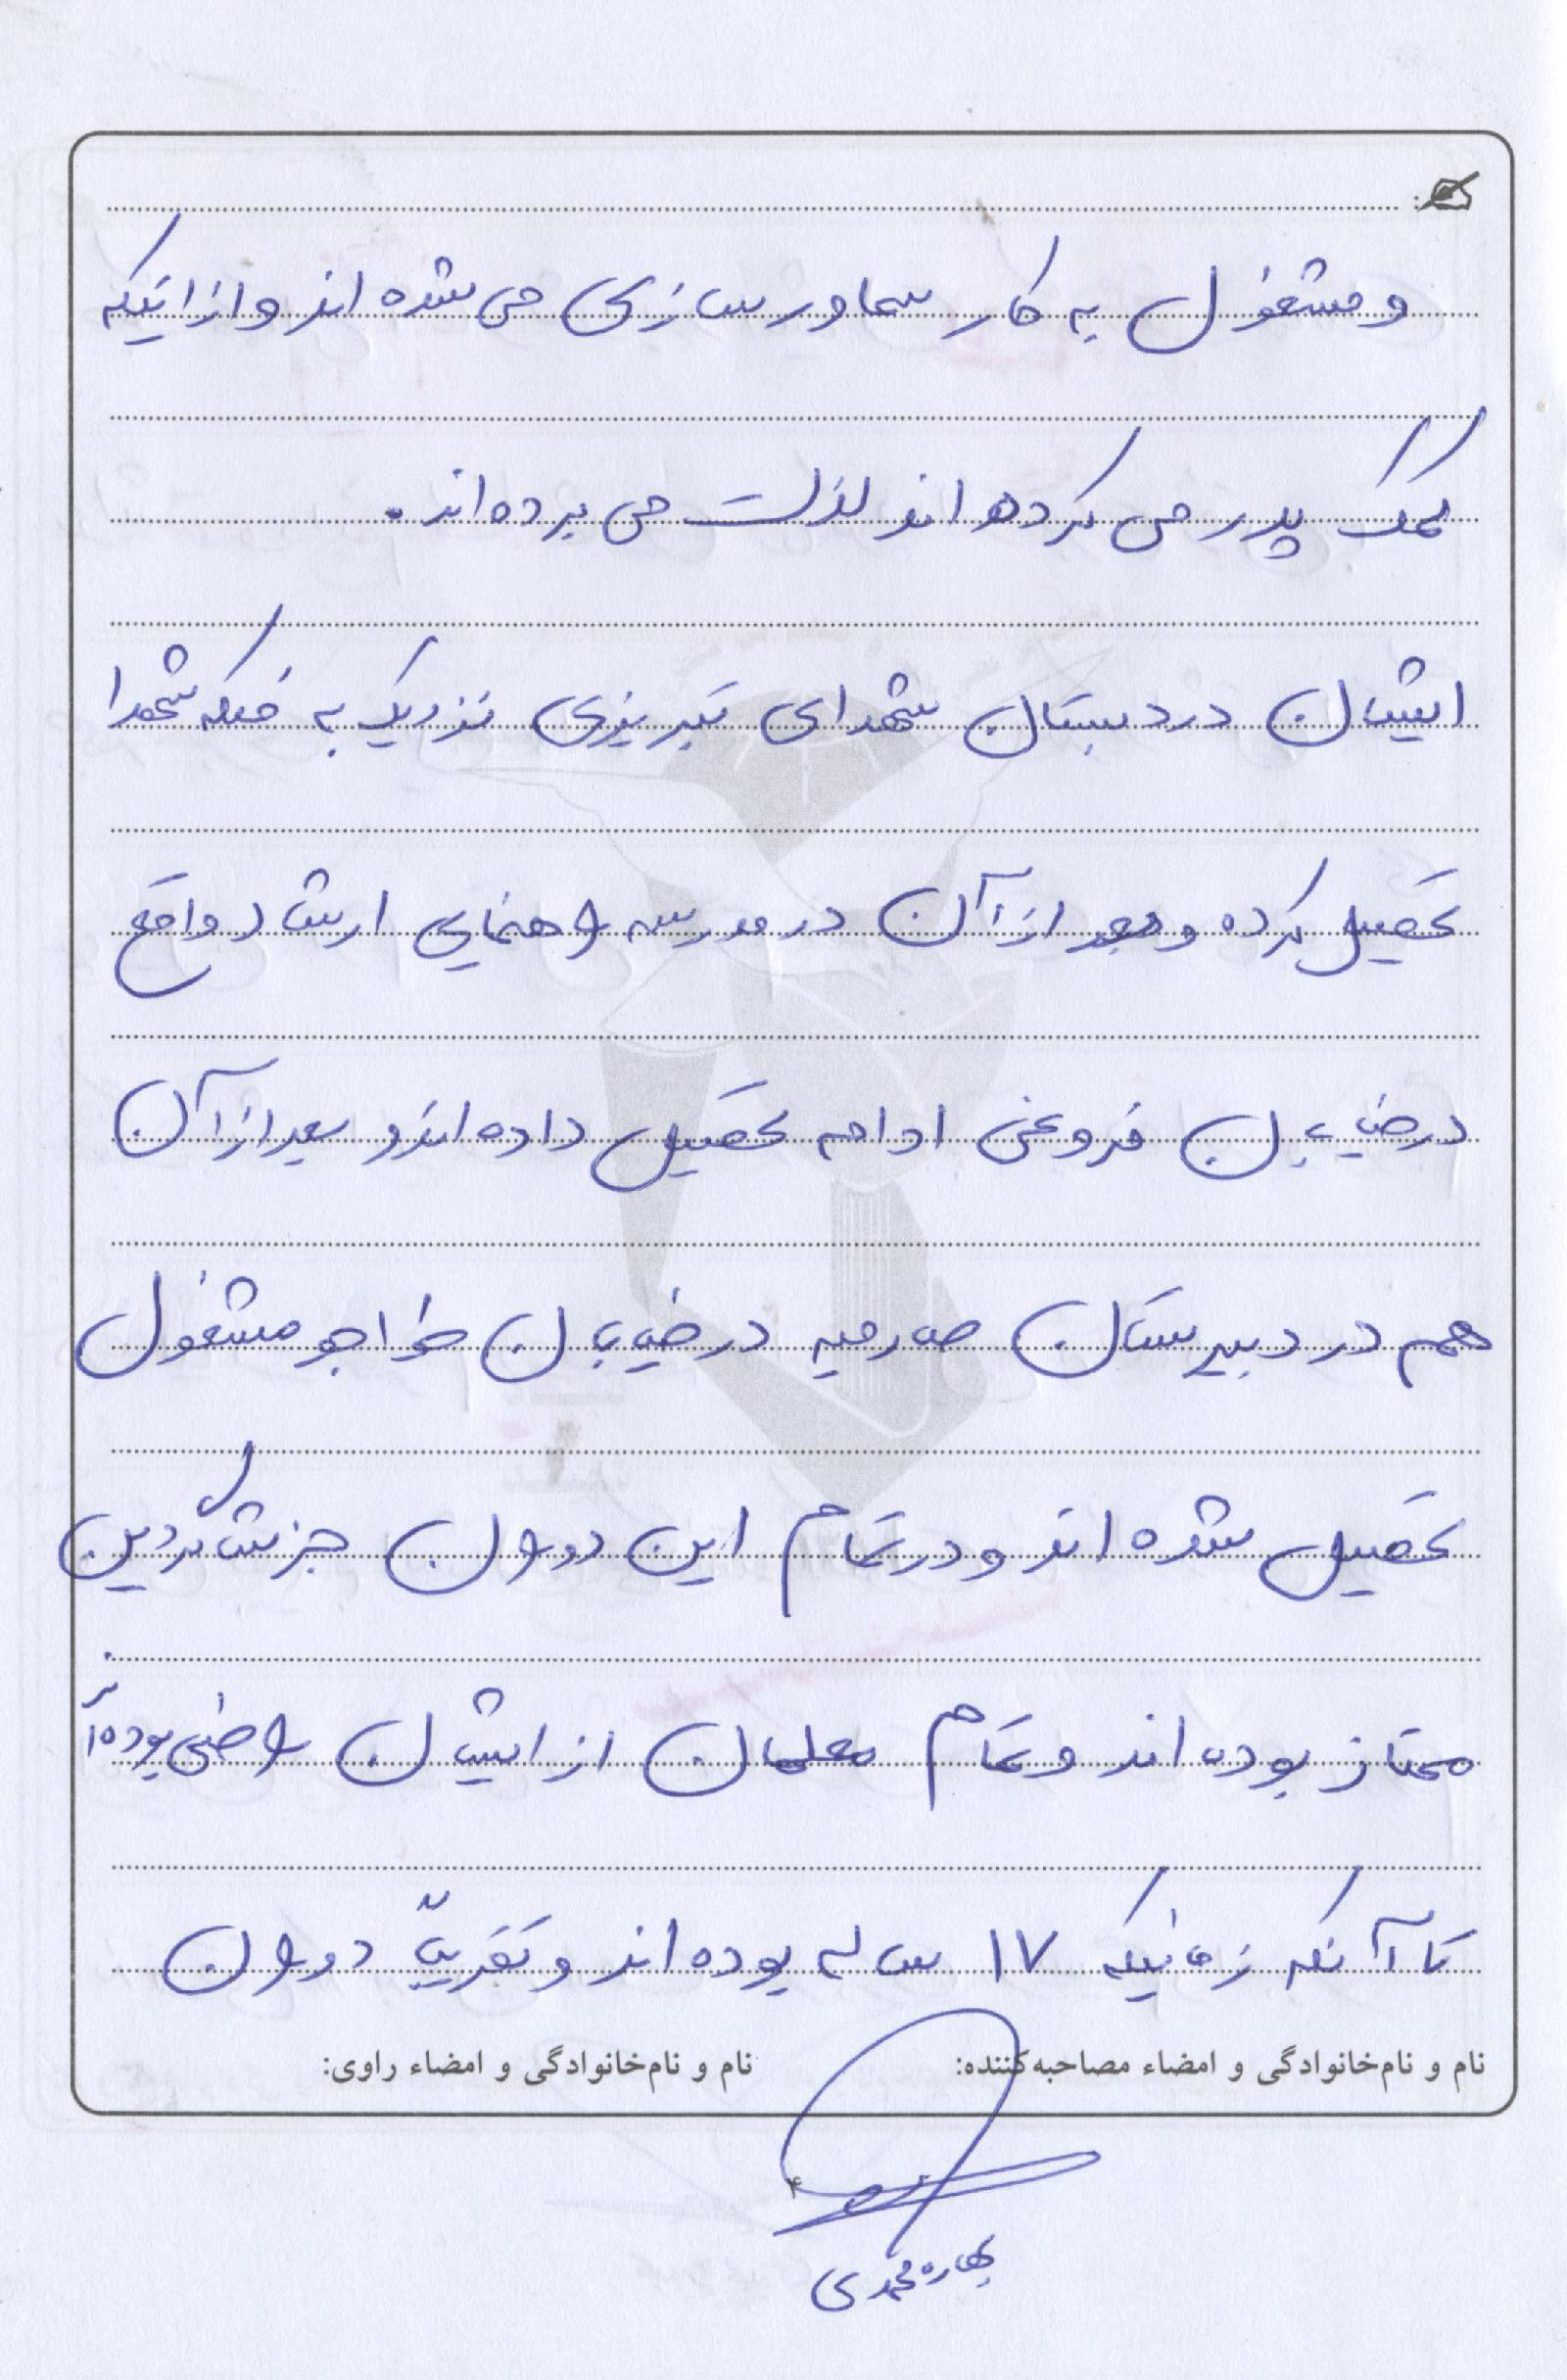 و مشغول به کار سماور سازی می شده اند و از اینکه
کمک پدر می کرده اند لذت می برده اند.
ایشان در دبستان شهدای تبریزی نزدیک به فلکه شهدا
تحصیل کرده و بعد از آن در مدرسه راهنمایی ارشاد واقع
در خیابان فروغی ادامه تحصیل داده اند و بعد از آن
هم در دبیرستان صارمیه در خیابان خواجو مشغول
تحصیل شده اند و در تمام این دوران جز شاگردین
ممتاز بوده اند و تمام معلمان از ایشان راضی بوده اند
تا آنکه زمانیکه ۱۷ ساله بوده اند و تقریباً دوران
نام و نام‌خانوادگی و امضاء مصاحبه‌کننده: نام و نام‌خانوادگی و امضاء راوی:
۴
بهاره محمدی